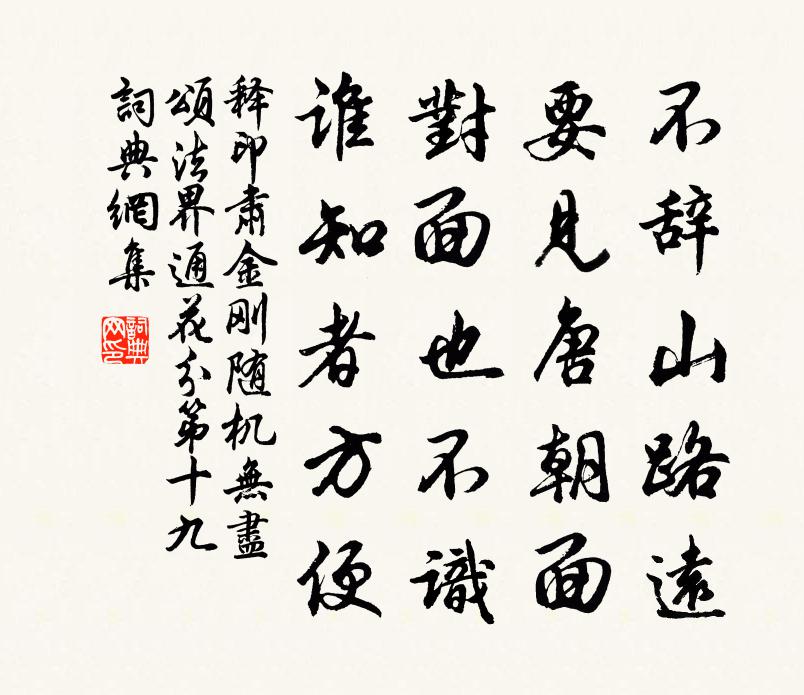 不辞山路遠
要見唐朝面
對面也不識
谁知者方便
释印肃金刚随机無盡
頌法界通花分第十九
詞典網集
詞典网印